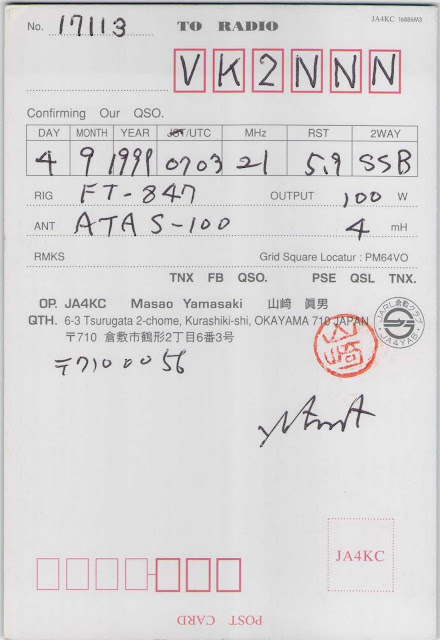 No. 17113 TO RADIO JA4KC
VK2NNN
Confirming Our QSO.
DAY MONTH YEAR JST/UTC MHz RST 2WAY
4 9 1991 0703 21 5.9 SSB
RIG FT-847 OUTPUT 100 W
ANT ATAS-100 4 mH
RMKS Grid Square Locatur : PM64VO
TNX FB QSO. PSE QSL TNX.
OP. JA4KC Masao Yamasaki 山﨑 眞男
QTH. 6-3 Tsurugata 2-chome, Kurashiki-shi, OKAYAMA 710 JAPAN
〒710 倉敷市鶴形2丁目6番3号
〒7100056
JARL倉敷クラブ
JA4YAB
JA4KC
POST CARD